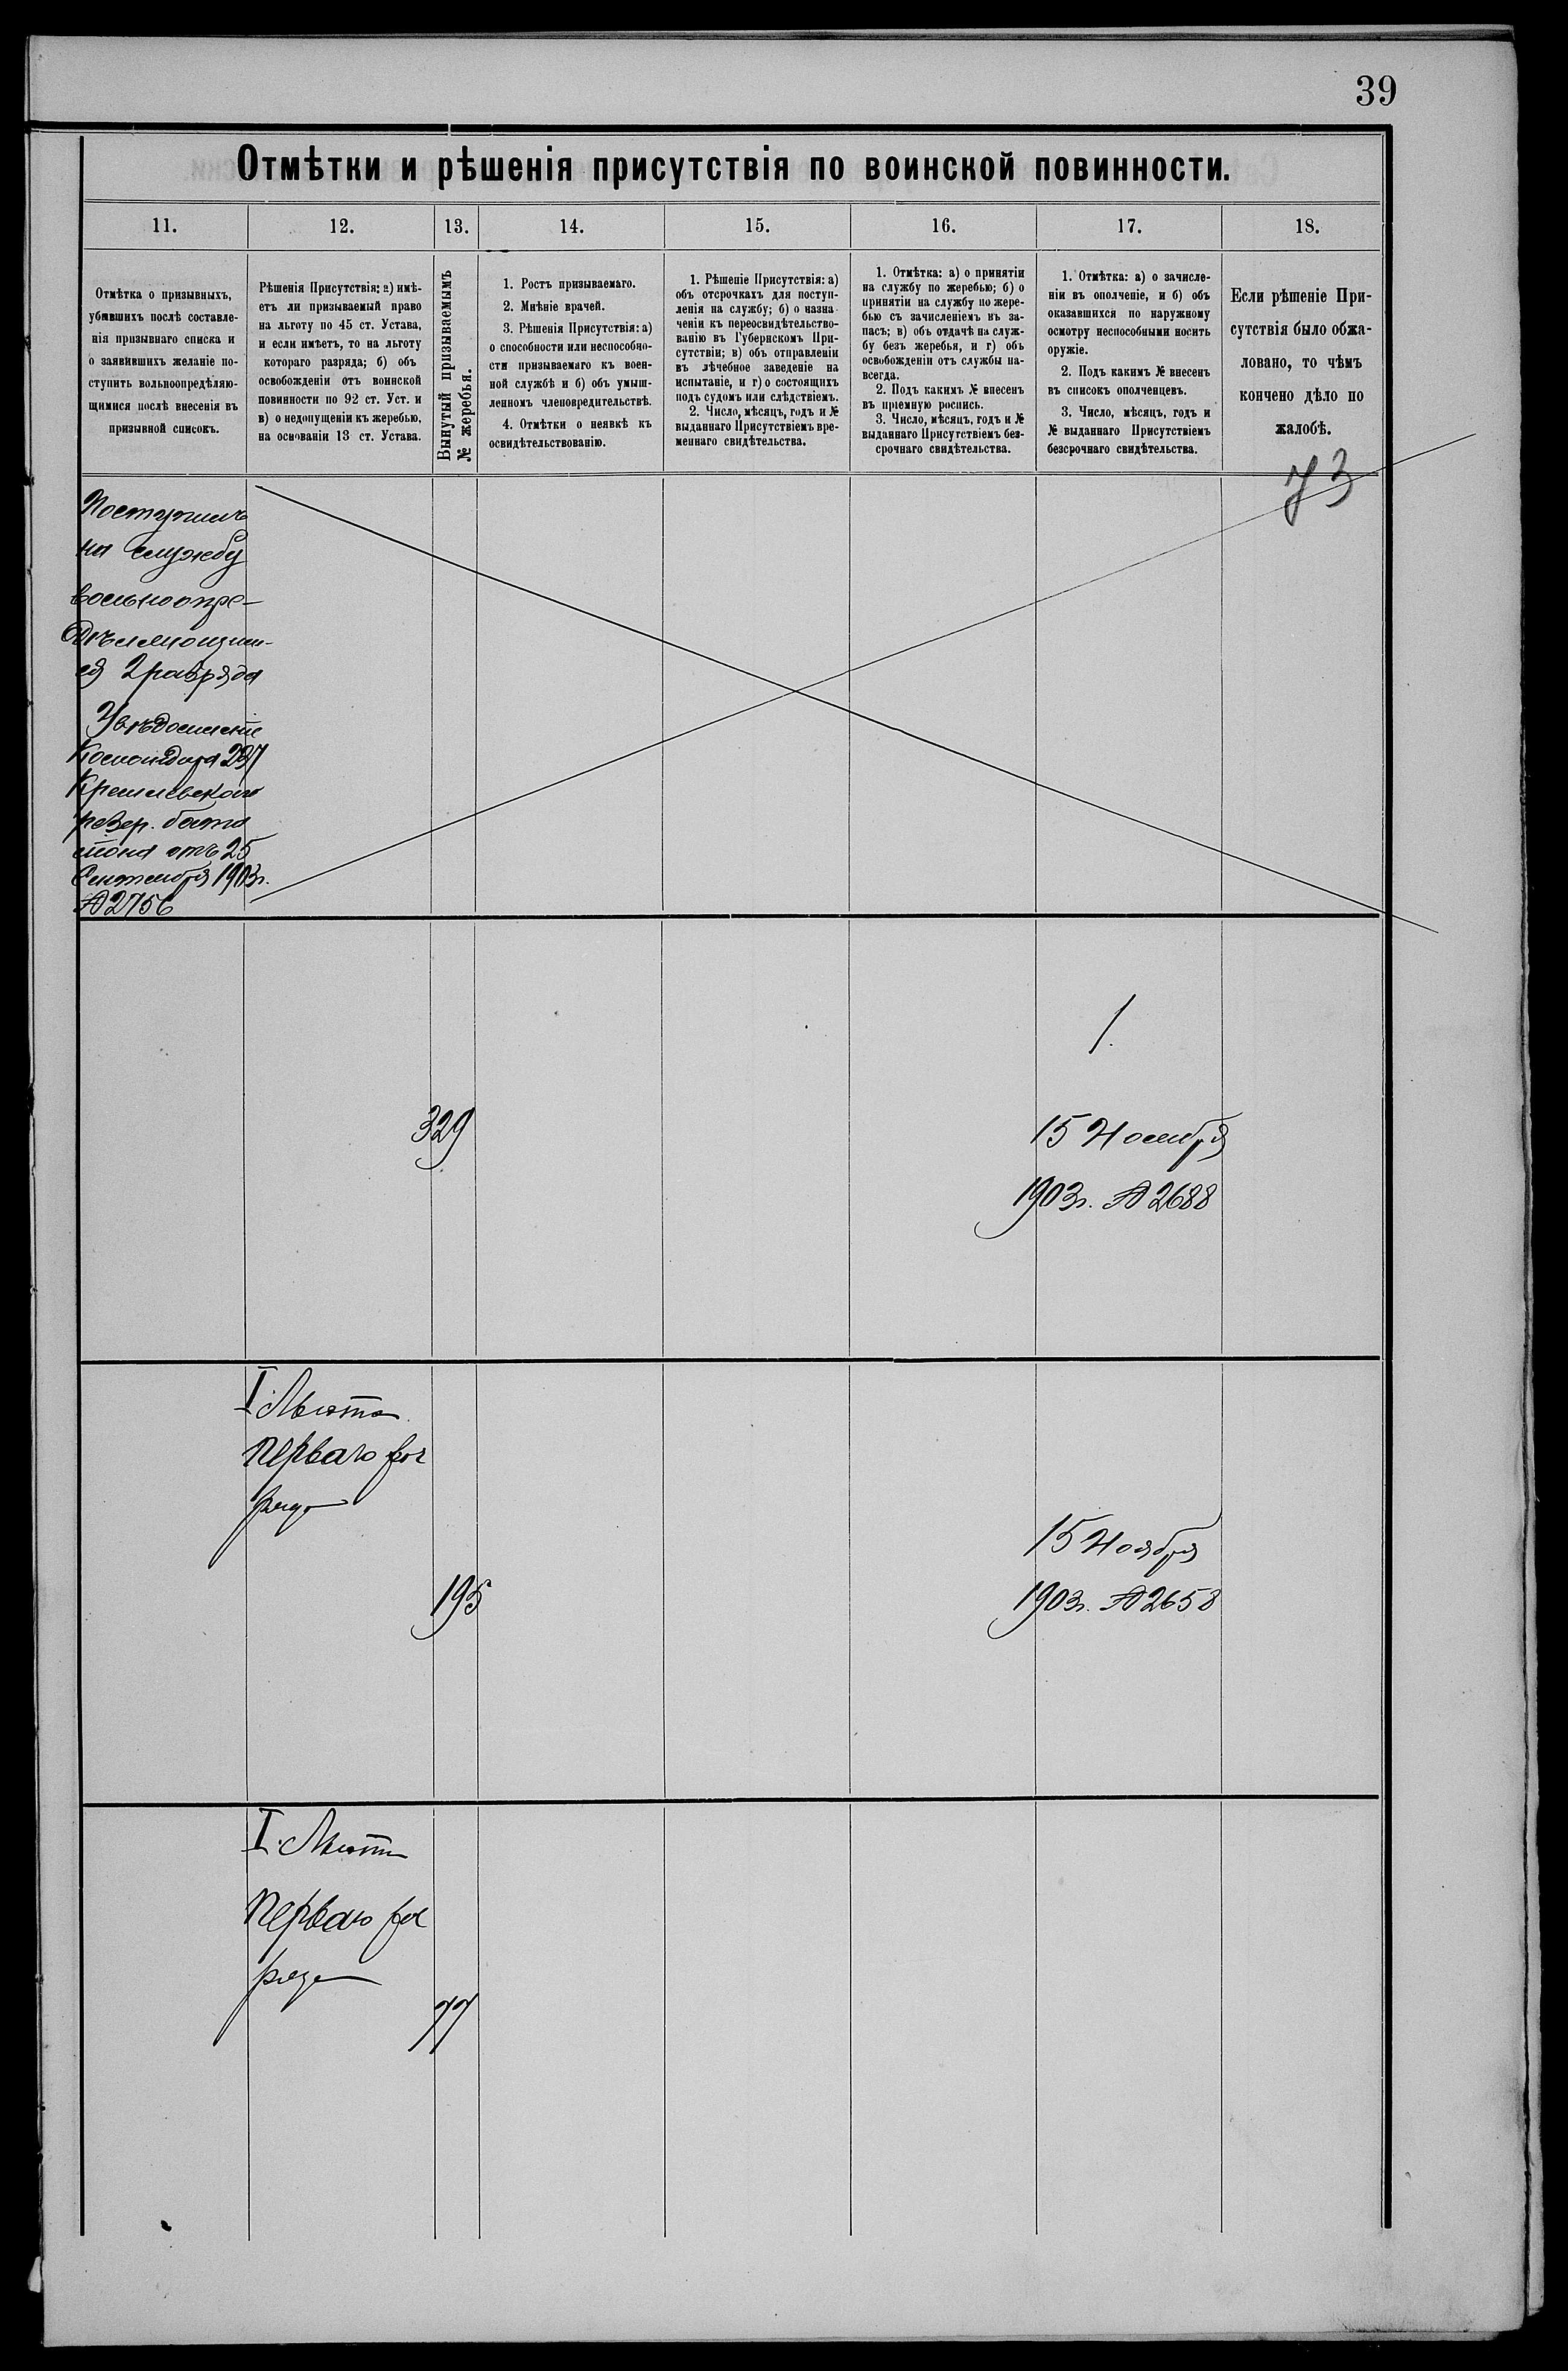 39
Отмѣтки и рѣшенія присутствія по воинской повинности.
11.
12.
13.
14.
15.
16.
17.
18.
Отмѣтка о призывныхъ,
убывшихъ послѣ составле-
нія призывнаго списка и
о заявившихъ желаніе по-
ступить вольноопредѣляю-
щимися послѣ внесенія въ
призывной списокъ.
Рѣшенія Присутствія: а) имѣ-
етъ ли призываемый право
на льготу по 45 ст. Устава,
и если имѣетъ, то на льготу
котораго разряда; б) объ
освобожденіи отъ воинской
повинности по 92 ст. Уст. и
в) о недопущеніи къ жеребью,
на основаніи 13 ст. Устава.
Вынутый призываемымъ
№ жеребья.
1. Ростъ призываемаго.
2. Мнѣніе врачей.
3. Рѣшенія Присутствія: а)
о способности или неспособно-
сти призываемаго къ воен-
ной службѣ и б) объ умыш-
ленномъ членовредительствѣ.
4. Отмѣтки о неявкѣ къ
освидѣтельствованію.
1. Рѣшеніе Присутствія: а)
объ отсрочкахъ для поступ-
ленія на службу; б) о назна-
ченіи къ переосвидѣтельство-
ванію въ Губернскомъ При-
сутствіи; в) объ отправленіи
въ лѣчебное заведеніе на
испытаніе, и г) о состоящихъ
подъ судомъ или слѣдствіемъ.
2. Число, мѣсяцъ, годъ и №
выданнаго Присутствіемъ вре-
меннаго свидѣтельства.
1. Отмѣтка: а) о принятіи
на службу по жеребью; б) о
принятіи на службу по жере-
бью съ зачисленіемъ въ за-
пасъ; в) объ отдачѣ на служ-
бу безъ жеребья, и г) объ
освобожденіи отъ службы на-
всегда.
2. Подъ какимъ № внесенъ
въ пріемную роспись.
3. Число, мѣсяцъ, годъ и №
выданнаго Присутствіемъ без-
срочнаго свидѣтельства.
1. Отмѣтка: а) о зачисле-
ніи въ ополченіе, и б) объ
оказавшихся по наружному
осмотру неспособными носить
оружіе.
2. Подъ какимъ № внесенъ
въ списокъ ополченцевъ.
3. Число, мѣсяцъ, годъ и
№ выданнаго Присутствіемъ
безсрочнаго свидѣтельства.
Если рѣшеніе При-
сутствія было обжа-
ловано, то чѣмъ
кончено дѣло по
жалобѣ.
73
Поступилъ
на службу
вольноопре-
дѣляющим-
ся 2 разряда
Увѣдомленіе
Командира 237
Кремлевскаго
резер. бата
ліона отъ 25
Сентября 1903 г.
№ 2756
1.
329
15 Ноября
1903 г. № 2688
I Льгота
перваго раз
ряда
195
15 Ноября
1903 г. № 2658
I. Льгота
перваго раз
ряда
77